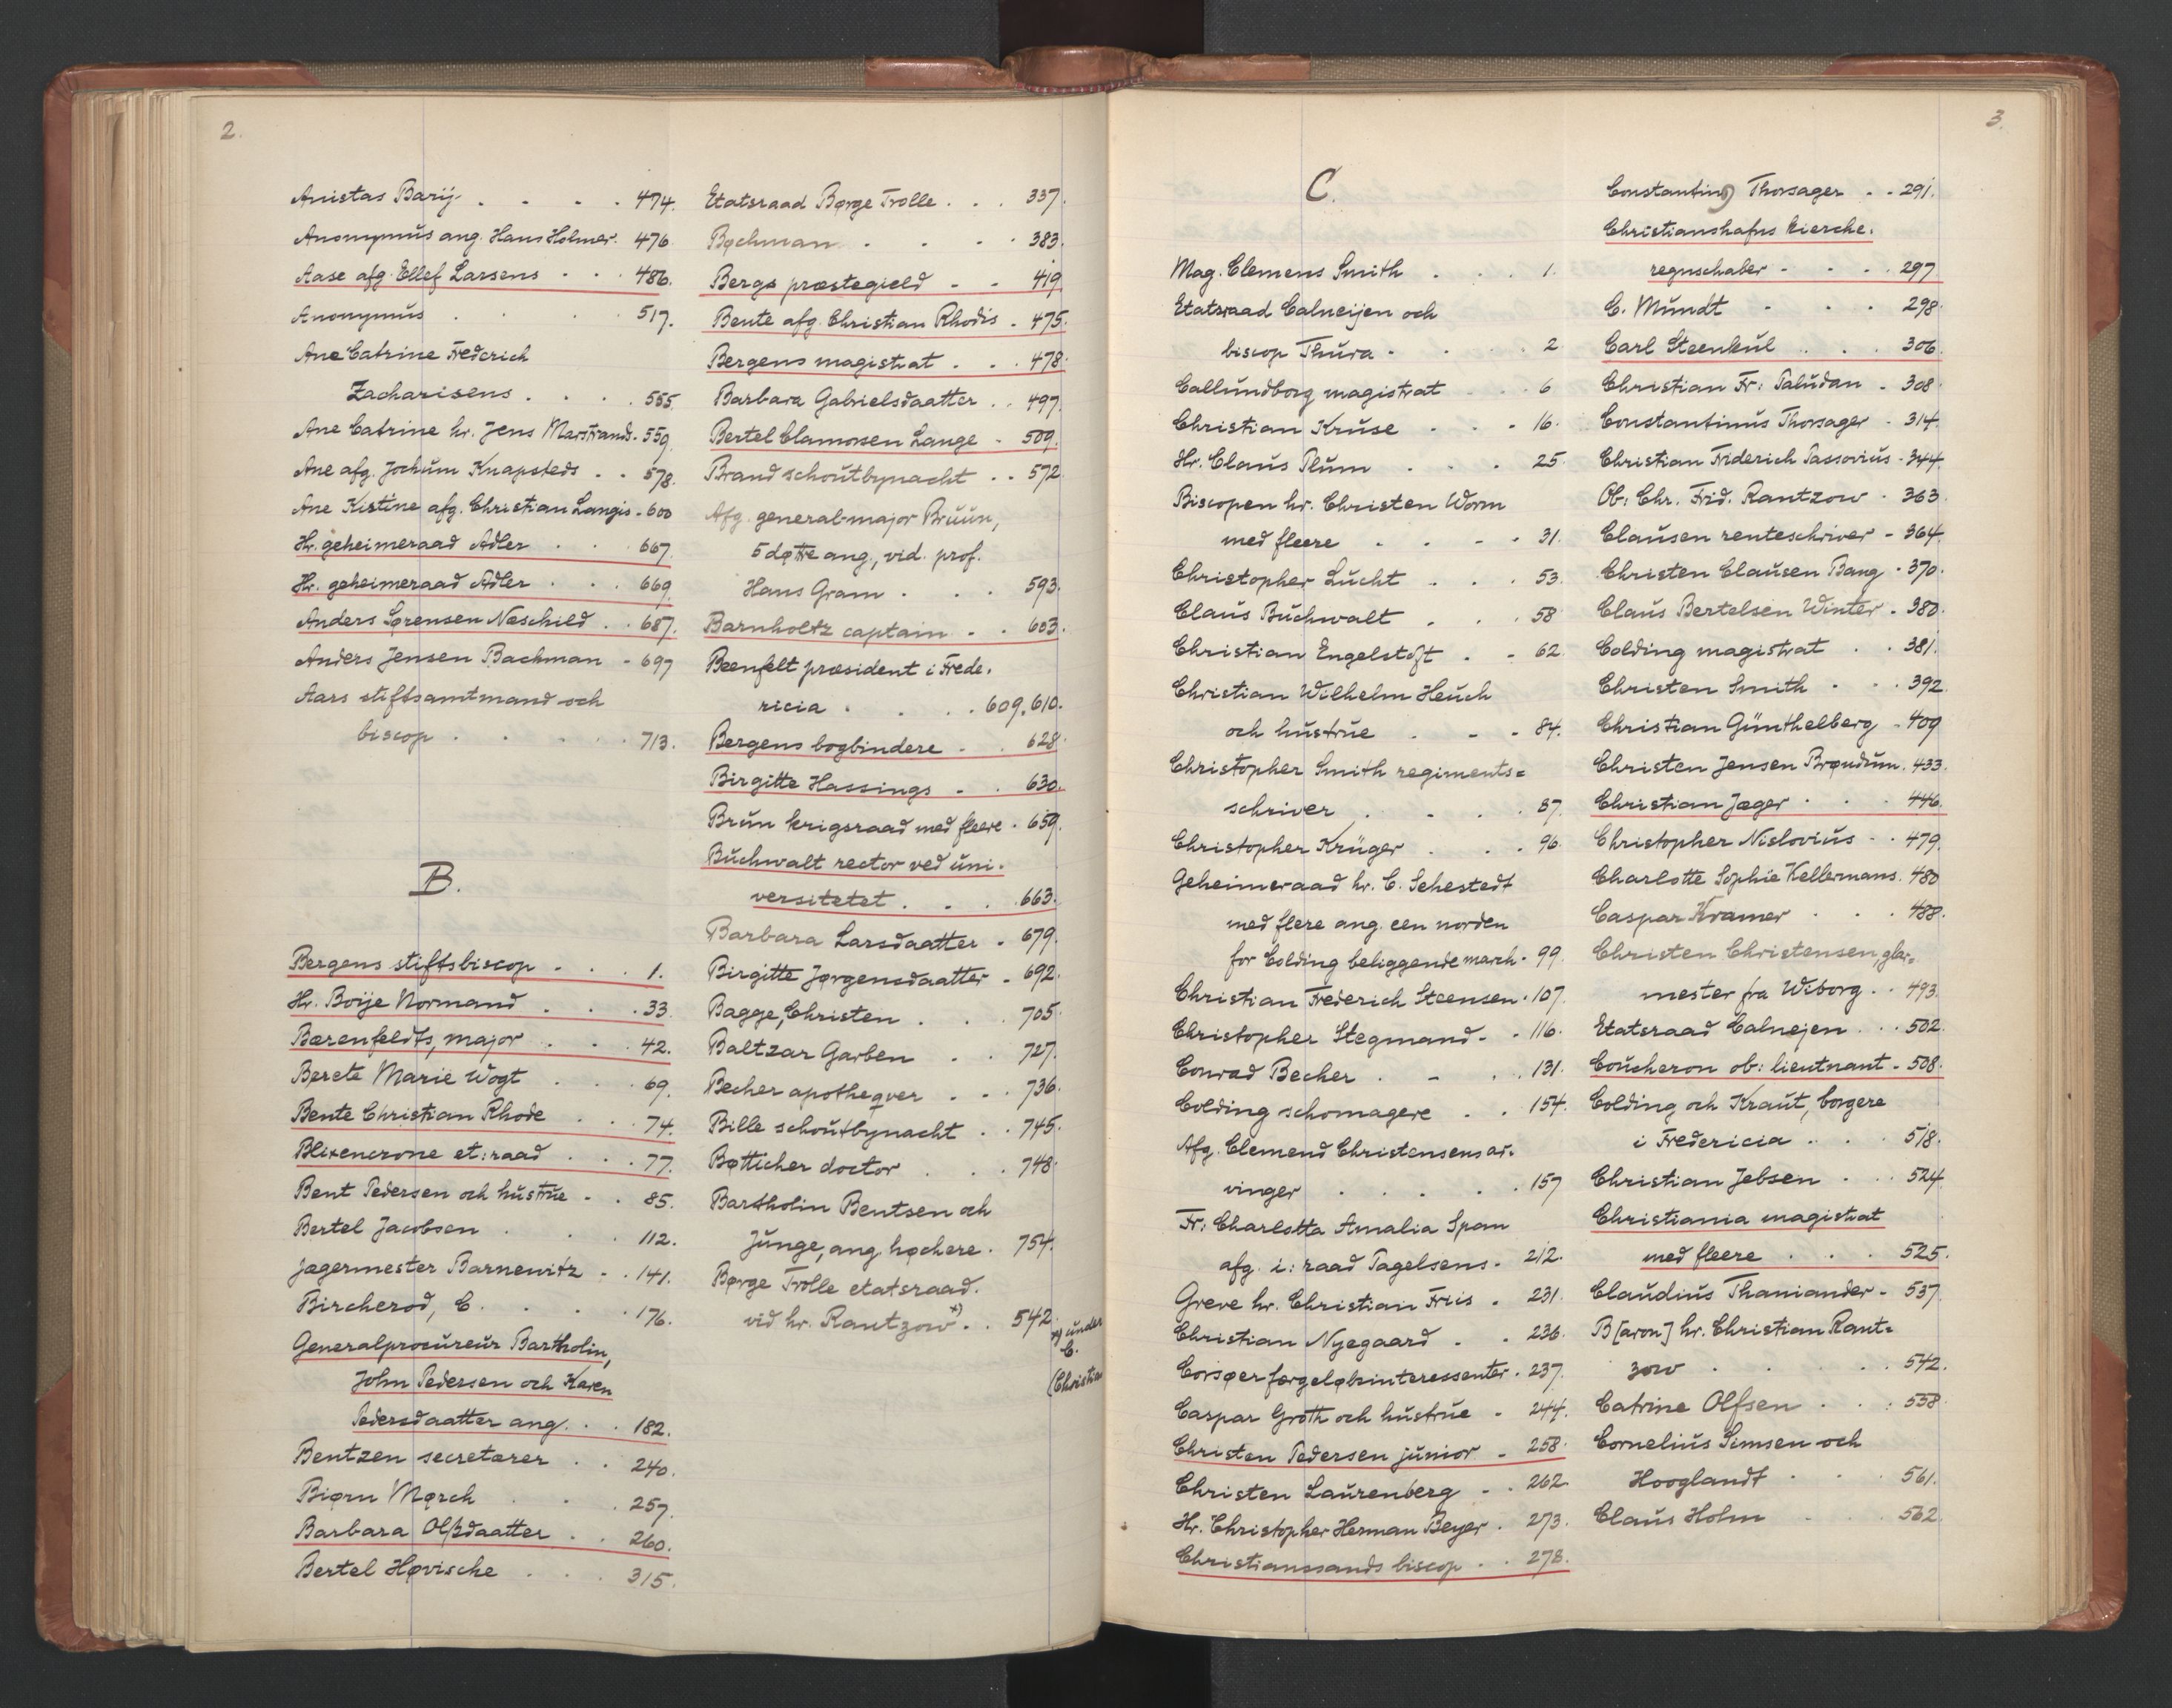 2.
Anistas Barij . . . . 474.
Anonymus ang. Hans Holmer. 476
Aase afg. Ellef Larsens - . . 486.
Anonymus . . . 517.
Ane Catrine Frederich
Zacharisens . . . . 555.
Ane Catrine hr. Jens Marstrands. 559.
Ane afg. Jochum Knapsteds . . 578.
Ane Kistine afg. Christian Langis - 600
Hr. geheimeraad Adler . . . 667.
Hr. geheimeraad Adler . . . 669.
Anders Sørensen Næschild . . 687.
Anders Jensen Bachman - 697
Aars stiftsamtmand och
biscop . . . . . 713.
B.
Bergens stiftsbiscop - . . 1.
Hr. Boije Normand . . . 33.
Bærenfeldts, major . . . 42.
Berete Marie Wogt . . . 69.
Bente Christian Rhode . . . 74.
Blixencrone et: raad . . . 77.
Bent Pedersen och hustrue - . 85.
Bertel Jacobsen . . . 112.
Jægermester Barnewitz - . 141.
Bircherod, C. . . . 176.
Generalprocureur Bartholin,
John Pedersen och Karen
Pedersdaatter ang. . . 182.
Bentzen secretærer . . 240.
Biørn Mørch . . . 257.
Barbara Olßdaatter . . 260.
Bertel Høvische . . . 315.
Etatsraad Børge Trolle . . . 337.
Bøchman . . . . 383.
Bergs præstegield - - 419.
Bente afg. Christian Rhodis . 475.
Bergens magistrat . . . 478.
Barbara Gabrielsdaatter . . 497.
Bertel Clamorsen Lange - 509.
Brand schoutbynacht . . 572
Afg. general-major Bruun,
5 døttre ang., vid. prof.
Hans Gram . . . 593.
Barnholtz captain - . 603.
Beenfelt præsident i Frede.
ricia . . . . 609. 610.
Bergens bogbindere - . 628.
Birgitte Hassings - . 630.
Brun krigsraad med fleere . 659.
Buchwalt rector ved uni.
versitetet . . . 663.
Barbara Larsdaatter . 679.
Birgitte Jørgensdaatter - 692.
Bagge, Christen . . . 705.
Baltzar Garben . . 727.
Becher apotheqver . . . 736.
Bille schoutbynacht . . 745.
Bøtticher doctor . . . 748.
Bartholin Bentsen och
Junge, ang. høchere . 754.
Børge Trolle etatsraad.
vid hr. Rantzow *) . . 542.
*) under
C.
(Christian
3.
C.
Mag. Clemens Smith . . . 1.
Etatsraad Calneijen och
biscop Thura - . . . 2
Callundborg magistrat . . 6
Christian Kruse . . - 16.
Hr. Claus Plum . . . 25.
Biscopen hr. Christen Worm
med fleere . . - - 31.
Christopher Lucht . . . 53.
Claus Buchwalt . . . 58
Christian Engelstoft . - 62.
Christian Wilhelm Heuch
och hustrue . - - 84.
Christopher Smith regiments=
schriver . . . . 87.
Christopher Krüger . . . 96.
Geheimeraad hr. C. Sehestedt
med flere ang. een norden
for Colding beliggende march. 99.
Christian Frederich Steensen . 107.
Christopher Stegmand - . 116.
Conrad Becher . - . . 131.
Colding schomagere . . 154.
Afg. Clemend Christensens ar.
vinger . . . . . 157
Fr: Charlotta Amalia Span
afg. i: raad Pagelsens. 212.
Greve hr. Christian Friis . 231.
Christian Nyegaard . . 236.
Corsøer færgeløbsinteressenter . 237.
Caspar Groth och hustrue . 244.
Christen Pedersen junior - 258.
Christen Laurenberg - . 262.
Hr. Christopher Herman Beyer . 273.
Christianssands biscop . . 278.
Constantin) Thorsager . . 291.
Christianshafns kierche.
regnschaber - . . . 297.
C. Mundt - . . 298.
Carl Steenkul . . . 306.
Christian Fr: Paludan . 308.
Constantinus Thorsager . 314.
Christian Friderich Passovius . 344.
Ob: Chr. Frid. Rantzow . 363
Clausen renteschriver - 364.
Christen Clausen Bang . 370.
Claus Bertelsen Winter . 380.
Colding magistrat . . 381.
Christen Smith . . . 392.
Christian Günthelberg . 409
Christen Jensen Brøndum. 433.
Christian Jæger . . . 446.
Christopher Nislovius . . 479.
Charlotte Sophie Kellermans. 480
Caspar Kramer . . . 488.
Christen Christensen, glar=
mester fra Wiborg . . 493.
Etatsraad Calnejen . . . 502.
Coucheron ob: lieutnant . 508.
Colding och Kraut, borgere
i Fredericia . . . 518.
Christian Jebsen . . . 524.
Christiania magistrat
med fleere . . . 525.
Claudius Thaniander - 537.
B[aron] hr. Christian Rant=
zow . . . . . 542.
Catrine Olfsen . . . 558.
Cornelius Simsen och
Hooglandt . . . 561.
Claus Holm . . . 562.